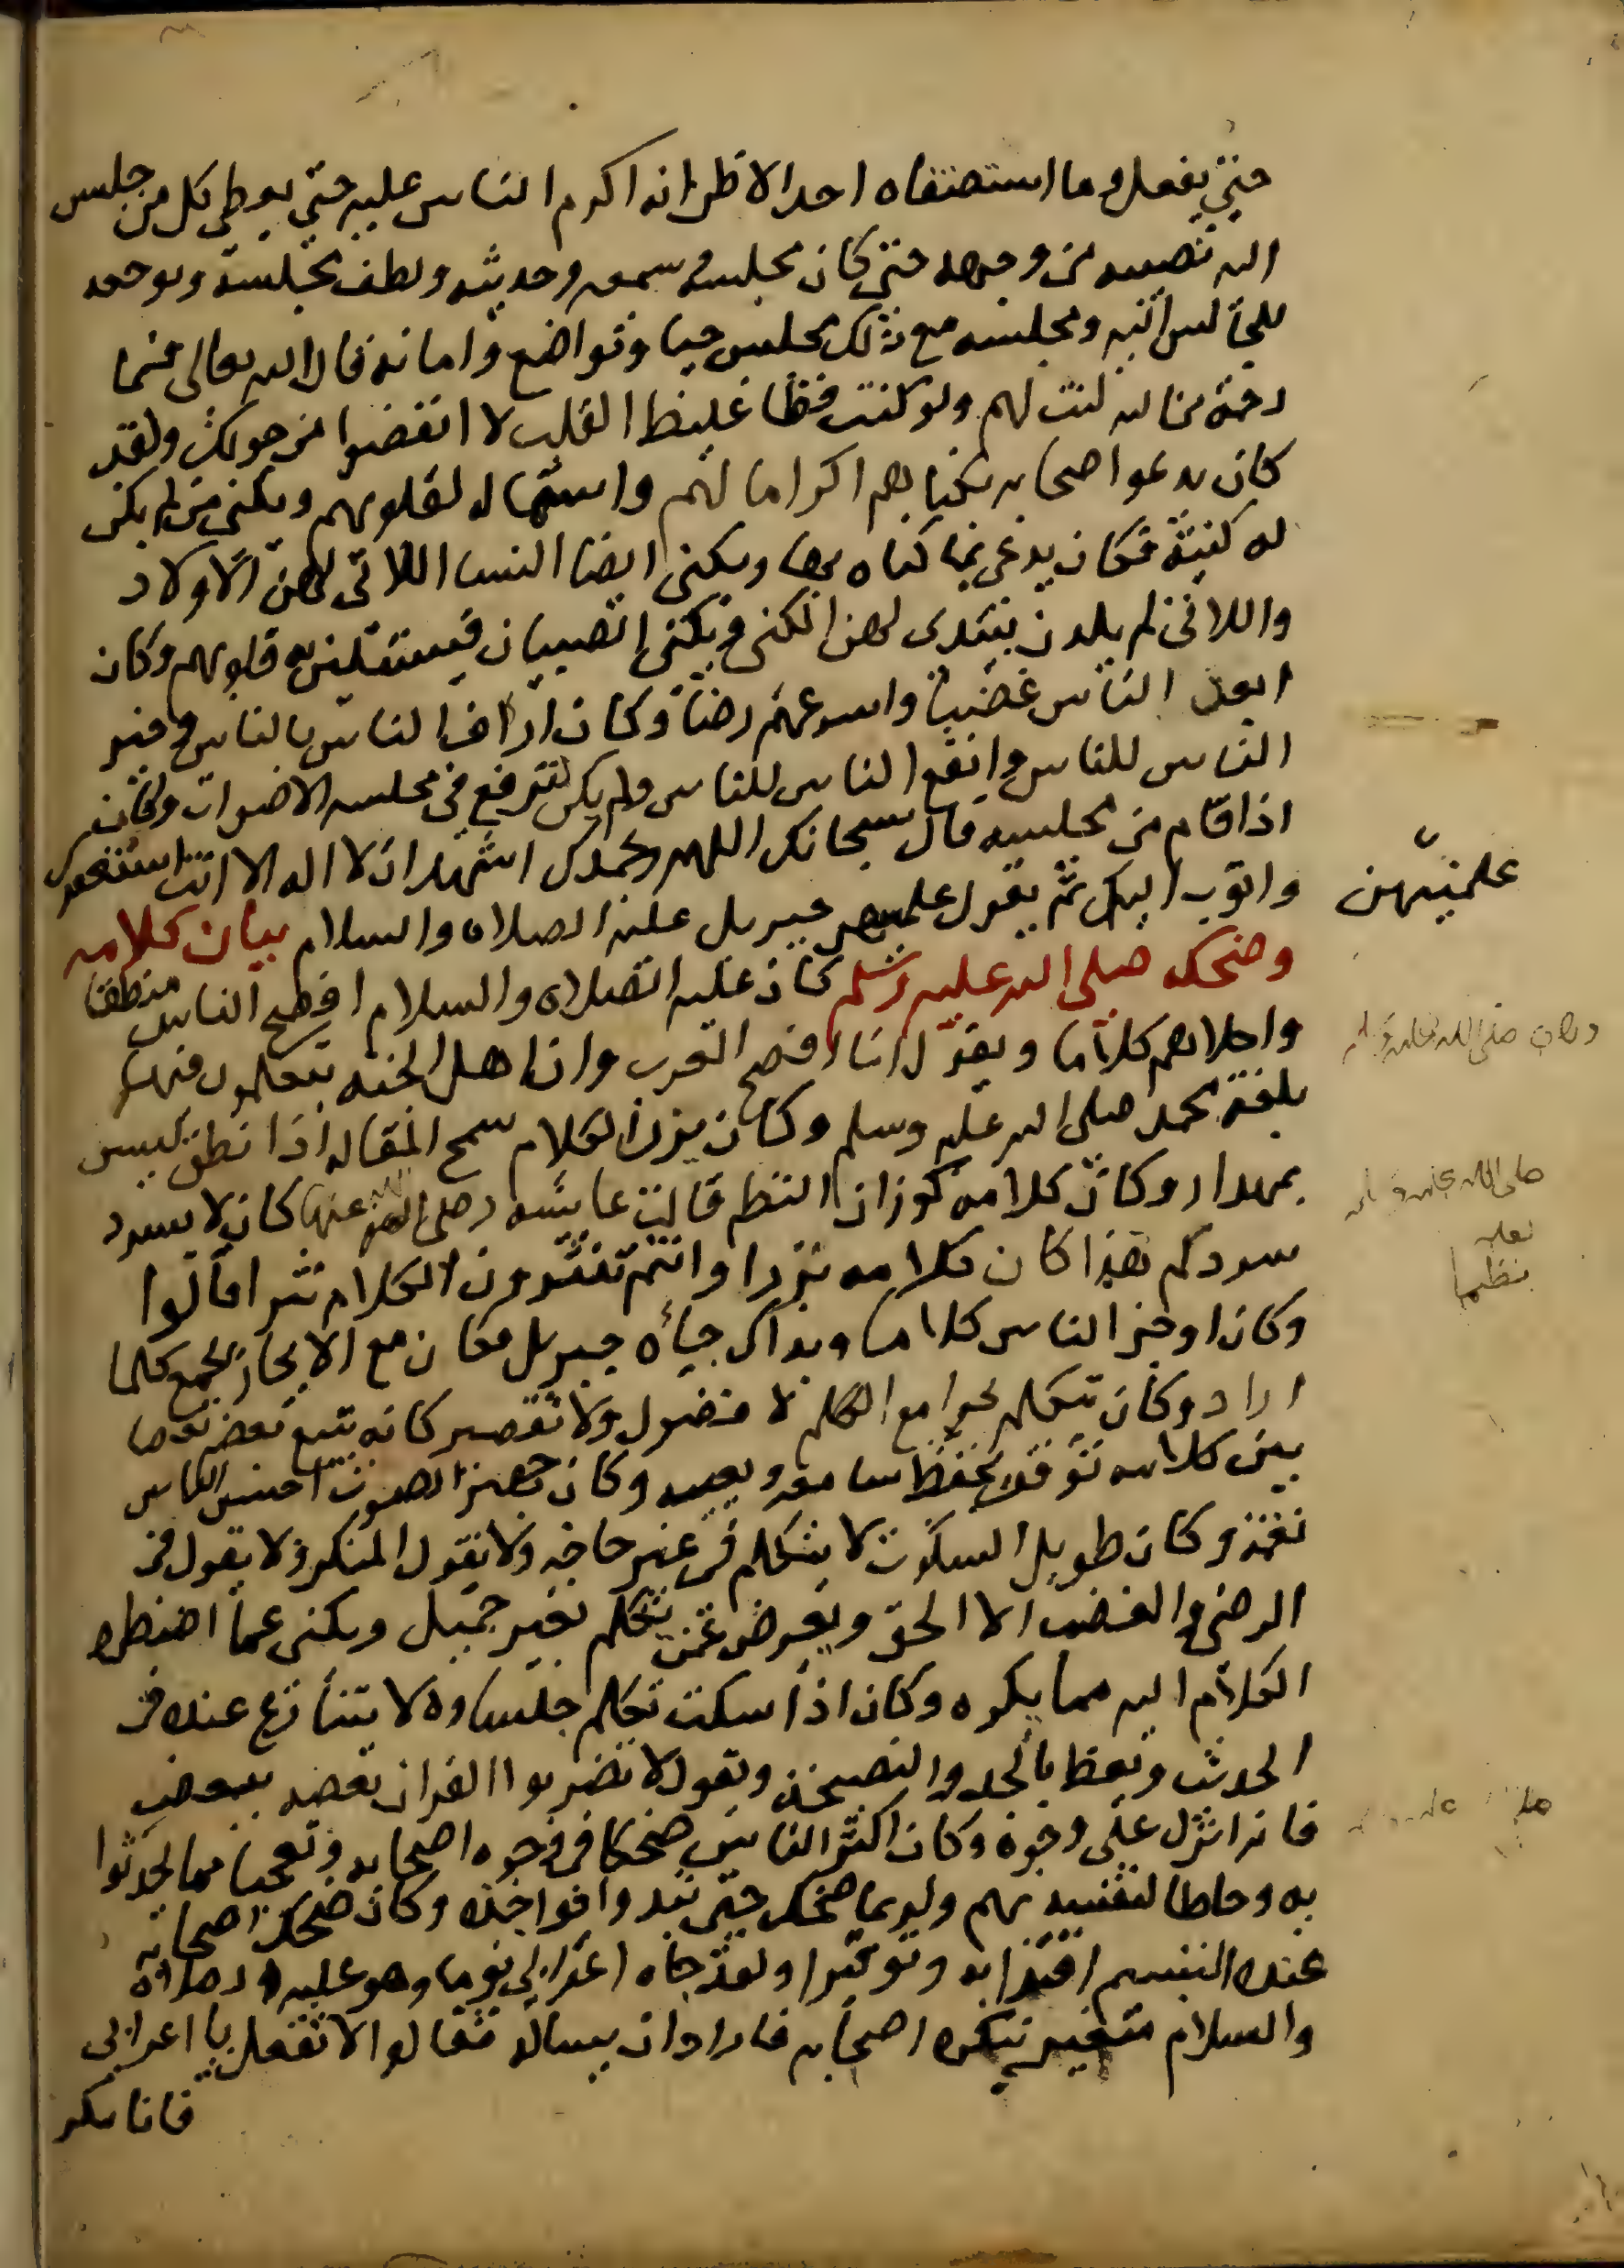 حتي يفعل وما استصغاه احد الا ظن انه اكرم الناس عليه حتي يعطي كل من جلس
اليه نصيبه من وجهه حتي كان مجلسه وسمعه وحديثه ولطف مجلسه وتوجهه
للجالس اليه ومجلسه مع ذلك مجلس حيا وتواضع وامانه قال الله تعالى فبما
رحمة من الله لنت لهم ولو كنت فظا غليظ القلب لا انفضوا من حولك ولقد
كان يدعوا اصحابه بكناهم اكراما لهم واستماله لقلوبهم ويكني من لم يكن
له كنية فكان يدعي بما كناه بها ويكني ايضا النسا اللاتي لهن الاولاد
واللاتي لم يلدن يبتدي لهن الكني ويكني الصبيان فيستلين به قلوبهم وكان
ابعد الناس غضبا واسرعهم رضا وكان اراف الناس بالناس وخير
الناس للناس وانفع الناس للناس ولم يكن تترفع في مجلسه الاصوات وكان
اذا قام من مجلسه قال سبحانك اللهم وبحمدك اشهد ان لا اله الا انت استغفرك
واتوب اليك ثم يقول علمنيهن جبريل عليه الصلاه والسلام بيان كلامه
علمنيهن
وضحكه صلى الله عليه وسلم كان عليه الصلاه والسلام افصح الناس منطقا
واحلاهم كلاما ويقول انا افصح العرب وان اهل الجنه يتكلمون فيها
بلغة محمد صلى الله عليه وسلم وكان نزر الكلام سمح المقاله اذا نطق ليس
بمهدار وكان كلامه كوزان النظم قالت عايشه رضي الله عنها كان لا يسرد
سردكم هذا كان كلامه نزرا وانتم تنثرون الكلام نثرا قالوا
نظما
وكان اوجز الناس كلاما وبذاك جاه جبريل وكان مع الايجاز يجمع كلما
اراد وكان يتكلم بجوامع الكلم لا فضول ولا تقصير كانه يتبع بعضه بعضا
بين كلامه توقف يحفظ سامعه ويعيه وكان جهير الصوت احسن الناس
نغمة وكان طويل السكوت لا يتكلم في غير حاجه ولا يقول المنكر ولا يقول في
الرضي والغضب الا الحق ويعرض عمن يتكلم بغير جميل ويكني عما اضطره
الكلام اليه مما يكره وكان اذا سكت تكلم جلساوه ولا يتنازع عنده في
الحديث ويعظ بالجد والنصيحة ويقول لا تضربوا القران بعضه ببعض
فانه انزل على وجوه وكان اكثر الناس ضحكا في وجوه اصحابه وتعجبا مما تحدثوا
به وخلطا لنفسه بهم ولربما ضحك حتي تبدوا نواجذه وكان ضحك اصحابه
عنده التبسم اقتدا به وتوقيرا ولقد جاه اعرابي يوما وهو عليه الصلاة
والسلام متغير ينكره اصحابه فاراد ان يساله فقالوا لا تفعل يا اعرابي
فانا ننكر